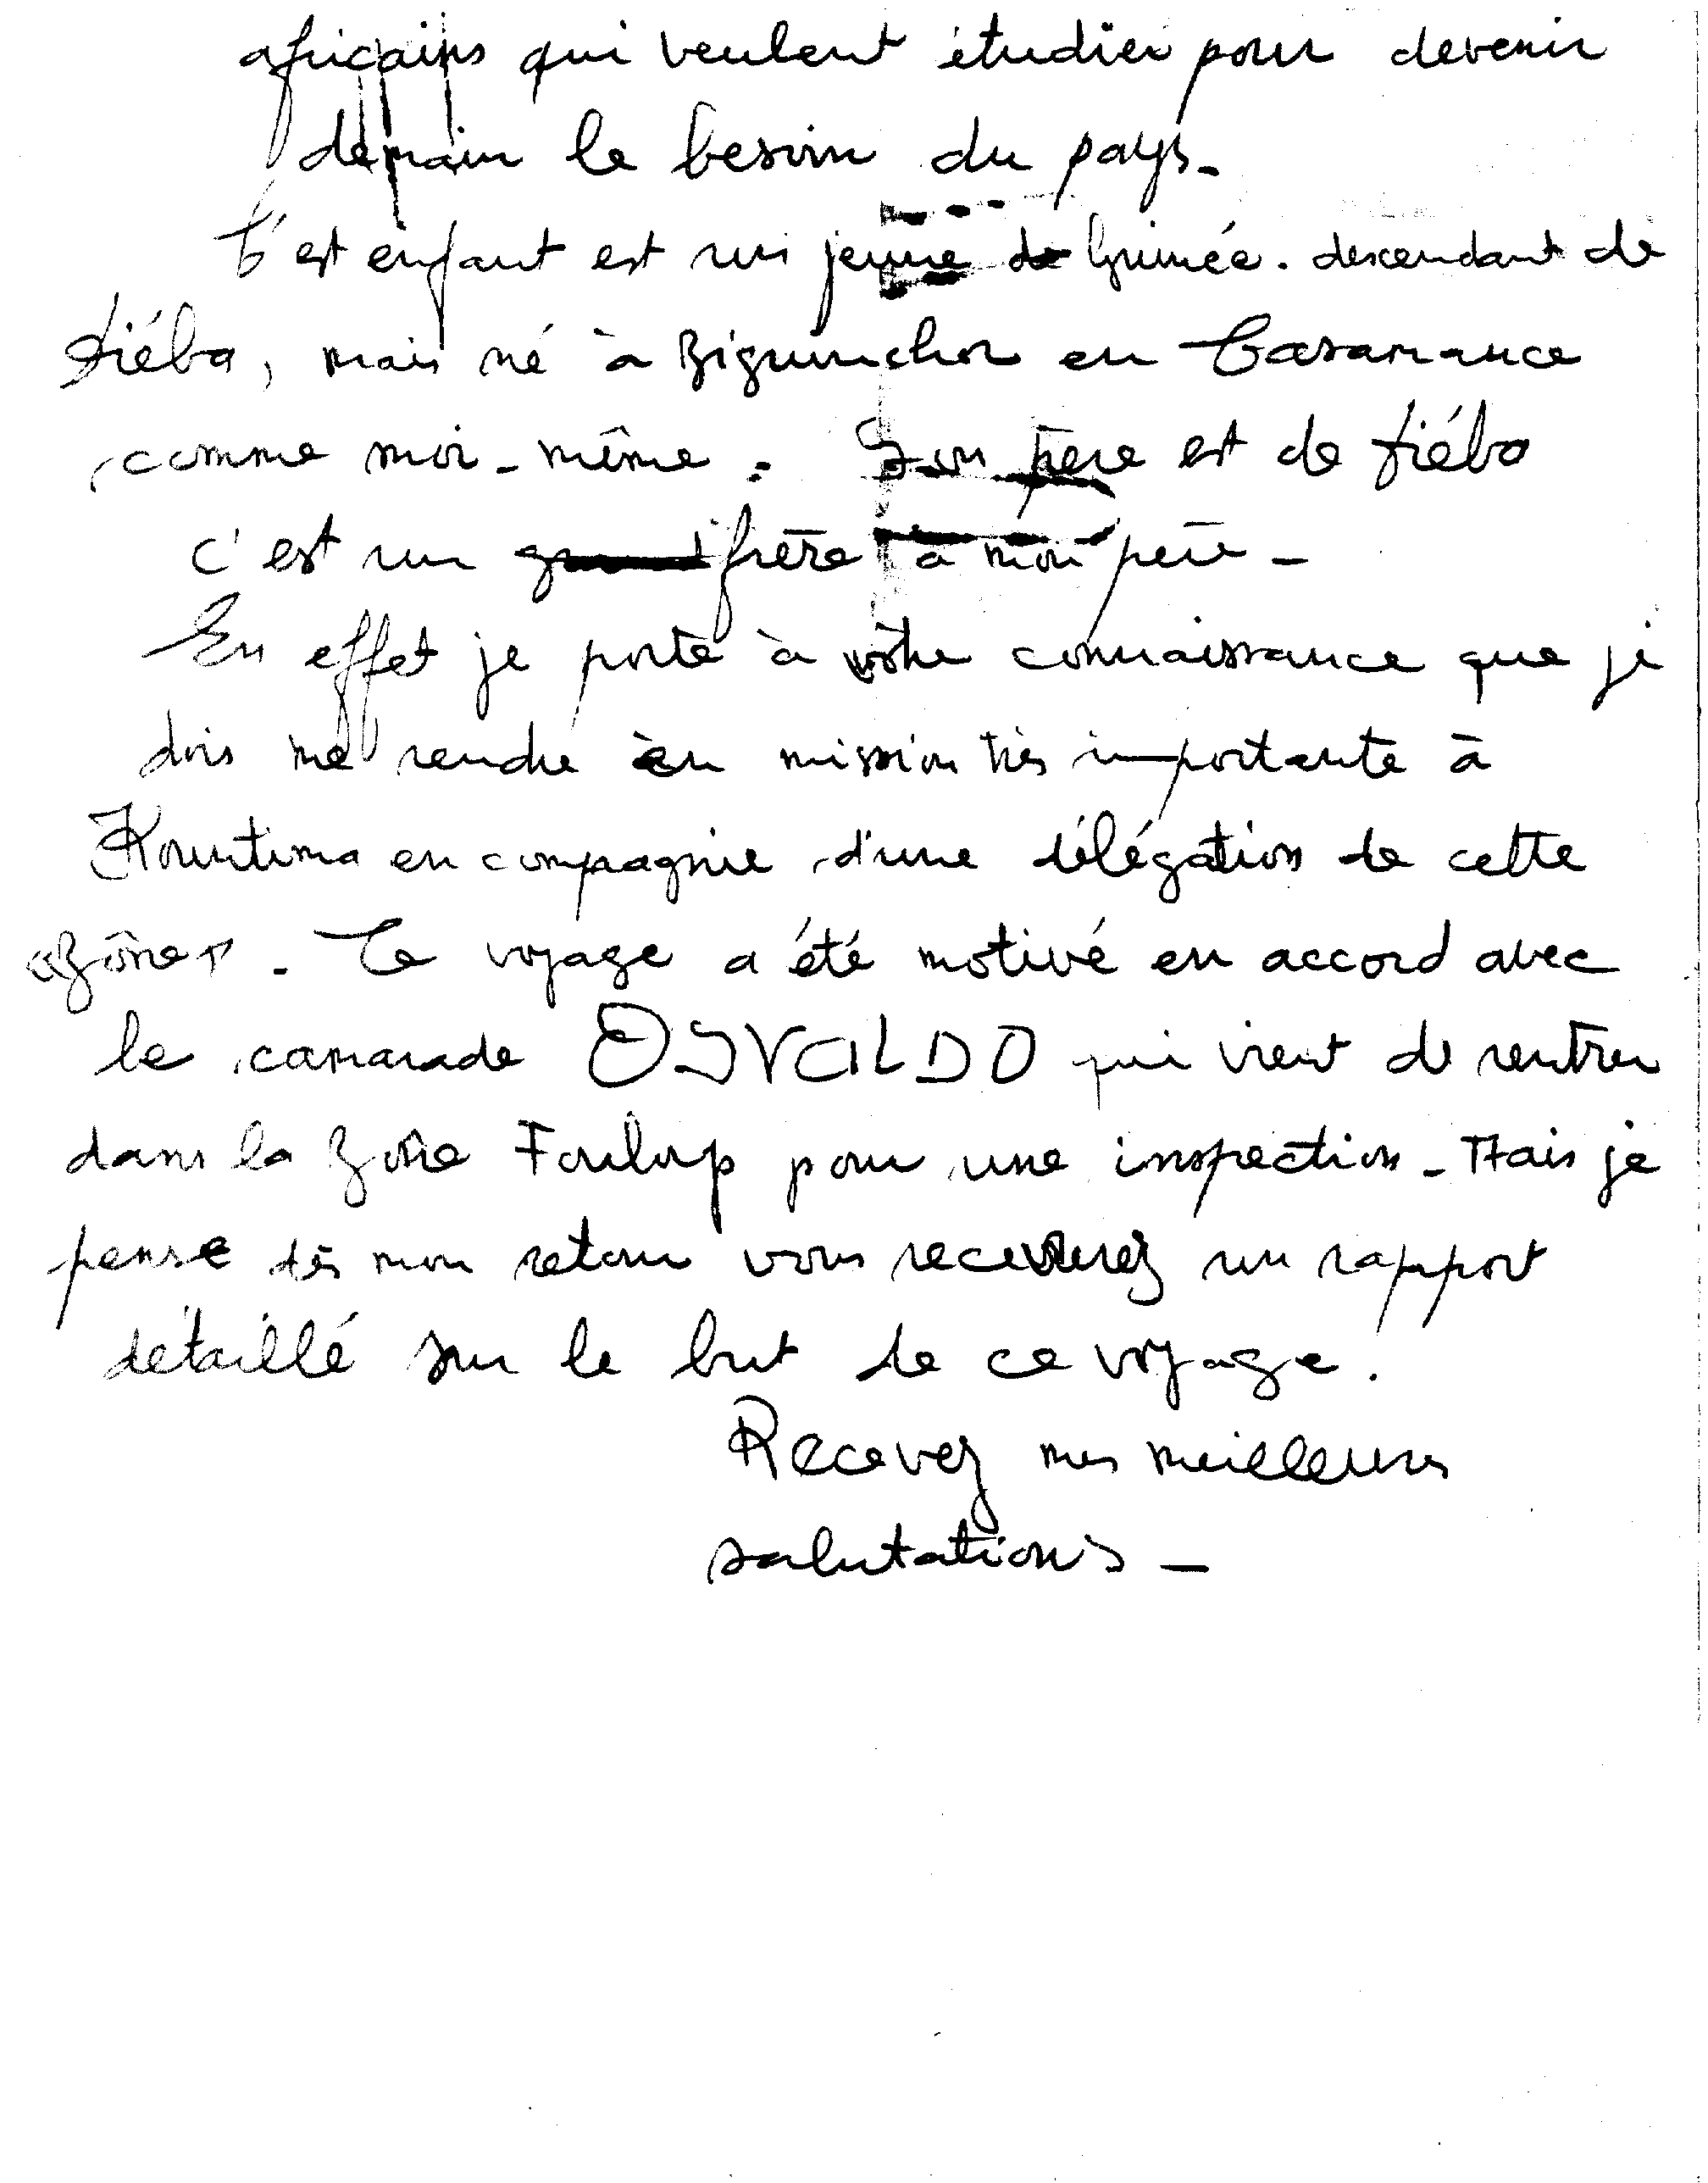 africains qui veulent étudier pour devenir
demain le besoin du pays -
C'est enfant est un jeune de Guinée. descendant de
Fiéba, mais né à Ziguinchor en Casamance
comme moi-même. Son père est de fiéba
c'est un frère à mon père -
En effet je porte à votre connaissance que je
dois me rendre en mission très importante à
Kountima en compagnie d'une délégation de cette
"Zône". Ce voyage a été motivé en accord avec
le camarade OSVALDO qui vient de rentrer
dans la Zone Fouloup pour une inspection - Mais je
pense dès mon retour vous receverez un rapport
détaillé sur le but de ce voyage.
Recevez mes meilleures
salutations -